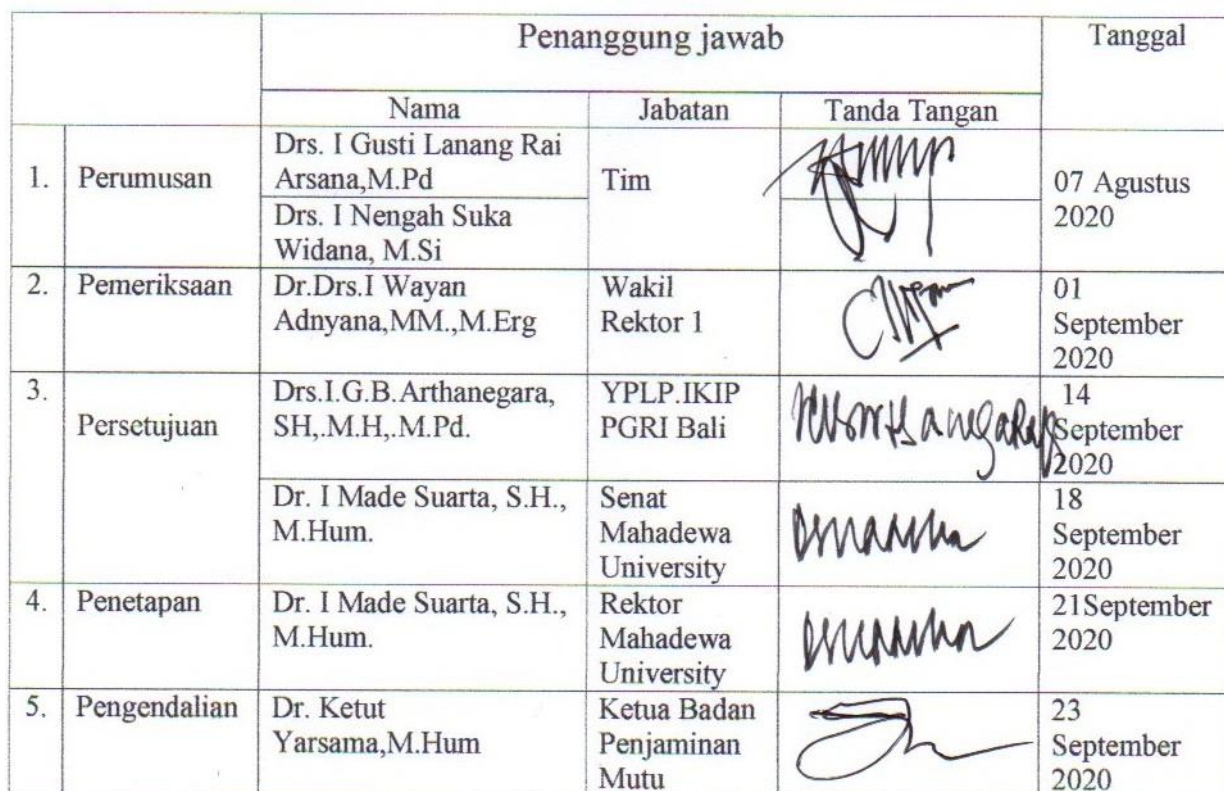 Penanggung jawab Tanggal
Nama Jabatan Tanda Tangan
1. Perumusan Drs. I Gusti Lanang Rai
Arsana,M.Pd Tim 07 Agustus
2020
Drs. I Nengah Suka
Widana, M.Si
2. Pemeriksaan Dr.Drs.I Wayan
Adnyana,MM.,M.Erg
Wakil
Rektor 1
01
September
2020
3. Persetujuan
Drs.I.G.B.Arthanegara,
SH,.M.H,.M.Pd.
YPLP.IKIP
PGRI Bali
14
September
2020
Dr. I Made Suarta, S.H.,
M.Hum.
Senat
Mahadewa
University
18
September
2020
4. Penetapan
Dr. I Made Suarta, S.H.,
M.Hum.
Rektor
Mahadewa
University
21September
2020
5. Pengendalian
Dr. Ketut
Yarsama,M.Hum
Ketua Badan
Penjaminan
Mutu
23
September
2020